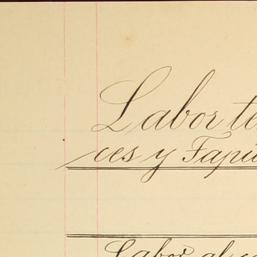 Labor te
ces y Tapic
Labor al c